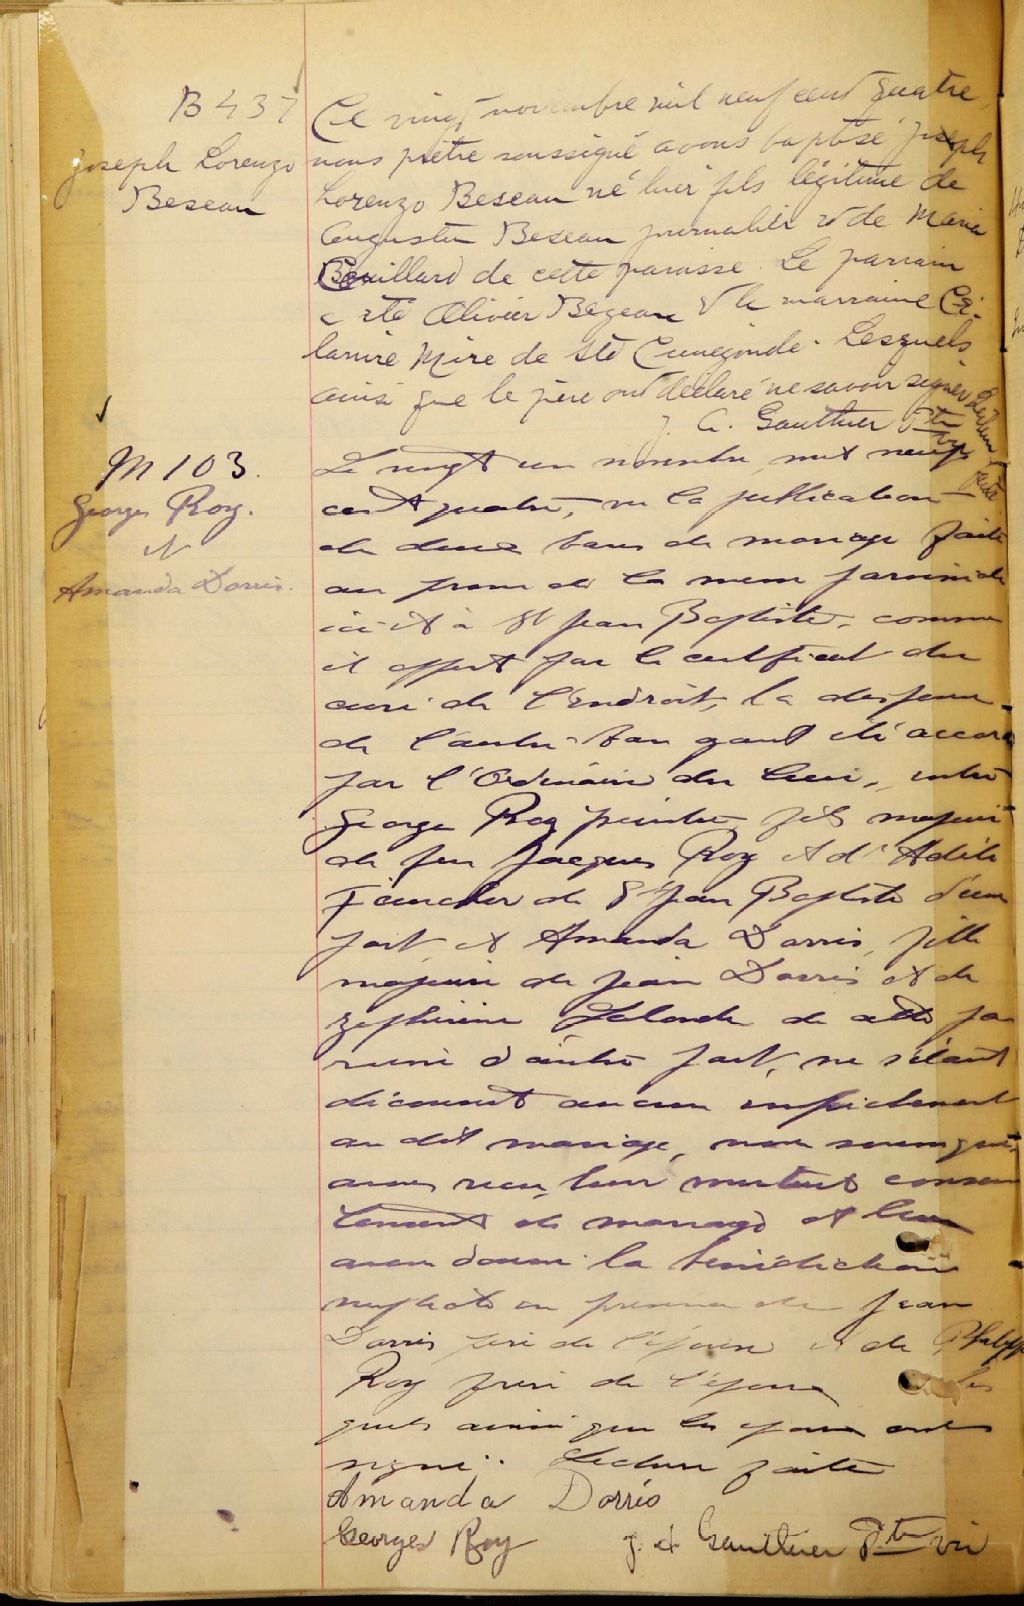 B 437
Joseph Lorenzo
Beseau
Ce vingt novembre mil neuf cent quatre,
nous prêtre soussigné avons baptisé Joseph
Lorenzo Beseau né hier fils légitime de
Augustin Beseau journalier et de Maria
Couillard de cette paroisse. Le parrain
a été Olivier Bezeau & la marraine
Mire de Ste Cunegonde. Lesquels
ainsi que le père ont déclaré ne savoir signer. Lecture faite
J. A. Gauthier Ptre vic
M 103.
Georges Roy.
et
Amanda Dorris.
Le vingt un novembre mil neuf
cent quatre, vu la publication
de deux bans de mariage faite
au prone de la messe paroissiale
ici et à St Jean Baptiste, comme
il appert par le certificat du
curé de l'endroit, la dispense
de l'autre ban ayant été accordé
par l'Ordinaire du lieu, entre
George Roy peintre fils majeur
de feu Jacques Roy et d'Adèle
de St Jean Baptiste d'une
part, et Amanda Dorris, fille
majeure de Jean Dorris et de
Zephirine Lalonde de cette pa
roisse d'autre part, ne s'étant
découvert aucun empêchement
au dit mariage, nous soussigné,
avons reçu leur mutuel consen
tement de mariage et leur
avons donné la bénédiction
nuptiale en présence de Jean
Dorris père de l'épouse et de Philippe
Roy frère de l'époux les
quels ainsi que les époux ont
signé. Lecture faite
Amanda Dorris
Georges Roy J. A. Gauthier Ptre vic